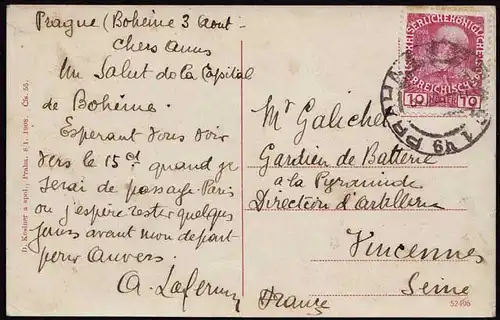 Prague (Bohème 3 Aout
Chers Amis
Un Salut de la Capital
de Bohême.
Esperant Vous voir
vers le 15 ct quand je
serai de passage Paris
ou j'espère rester quelques
jours avant mon depart
pour Anvers.
A.
Mr Galichet
Gardien de Batterie
à la Pyramide
Direction d'Artillerie
Vincennes
Seine
France
KAISERLICHE KÖNIGLICHE
ÖSTERREICHISCHE
10 HELLER 10
D. Kosiner a spol., Praha. # 1. 1908. Čís. 55.
52496